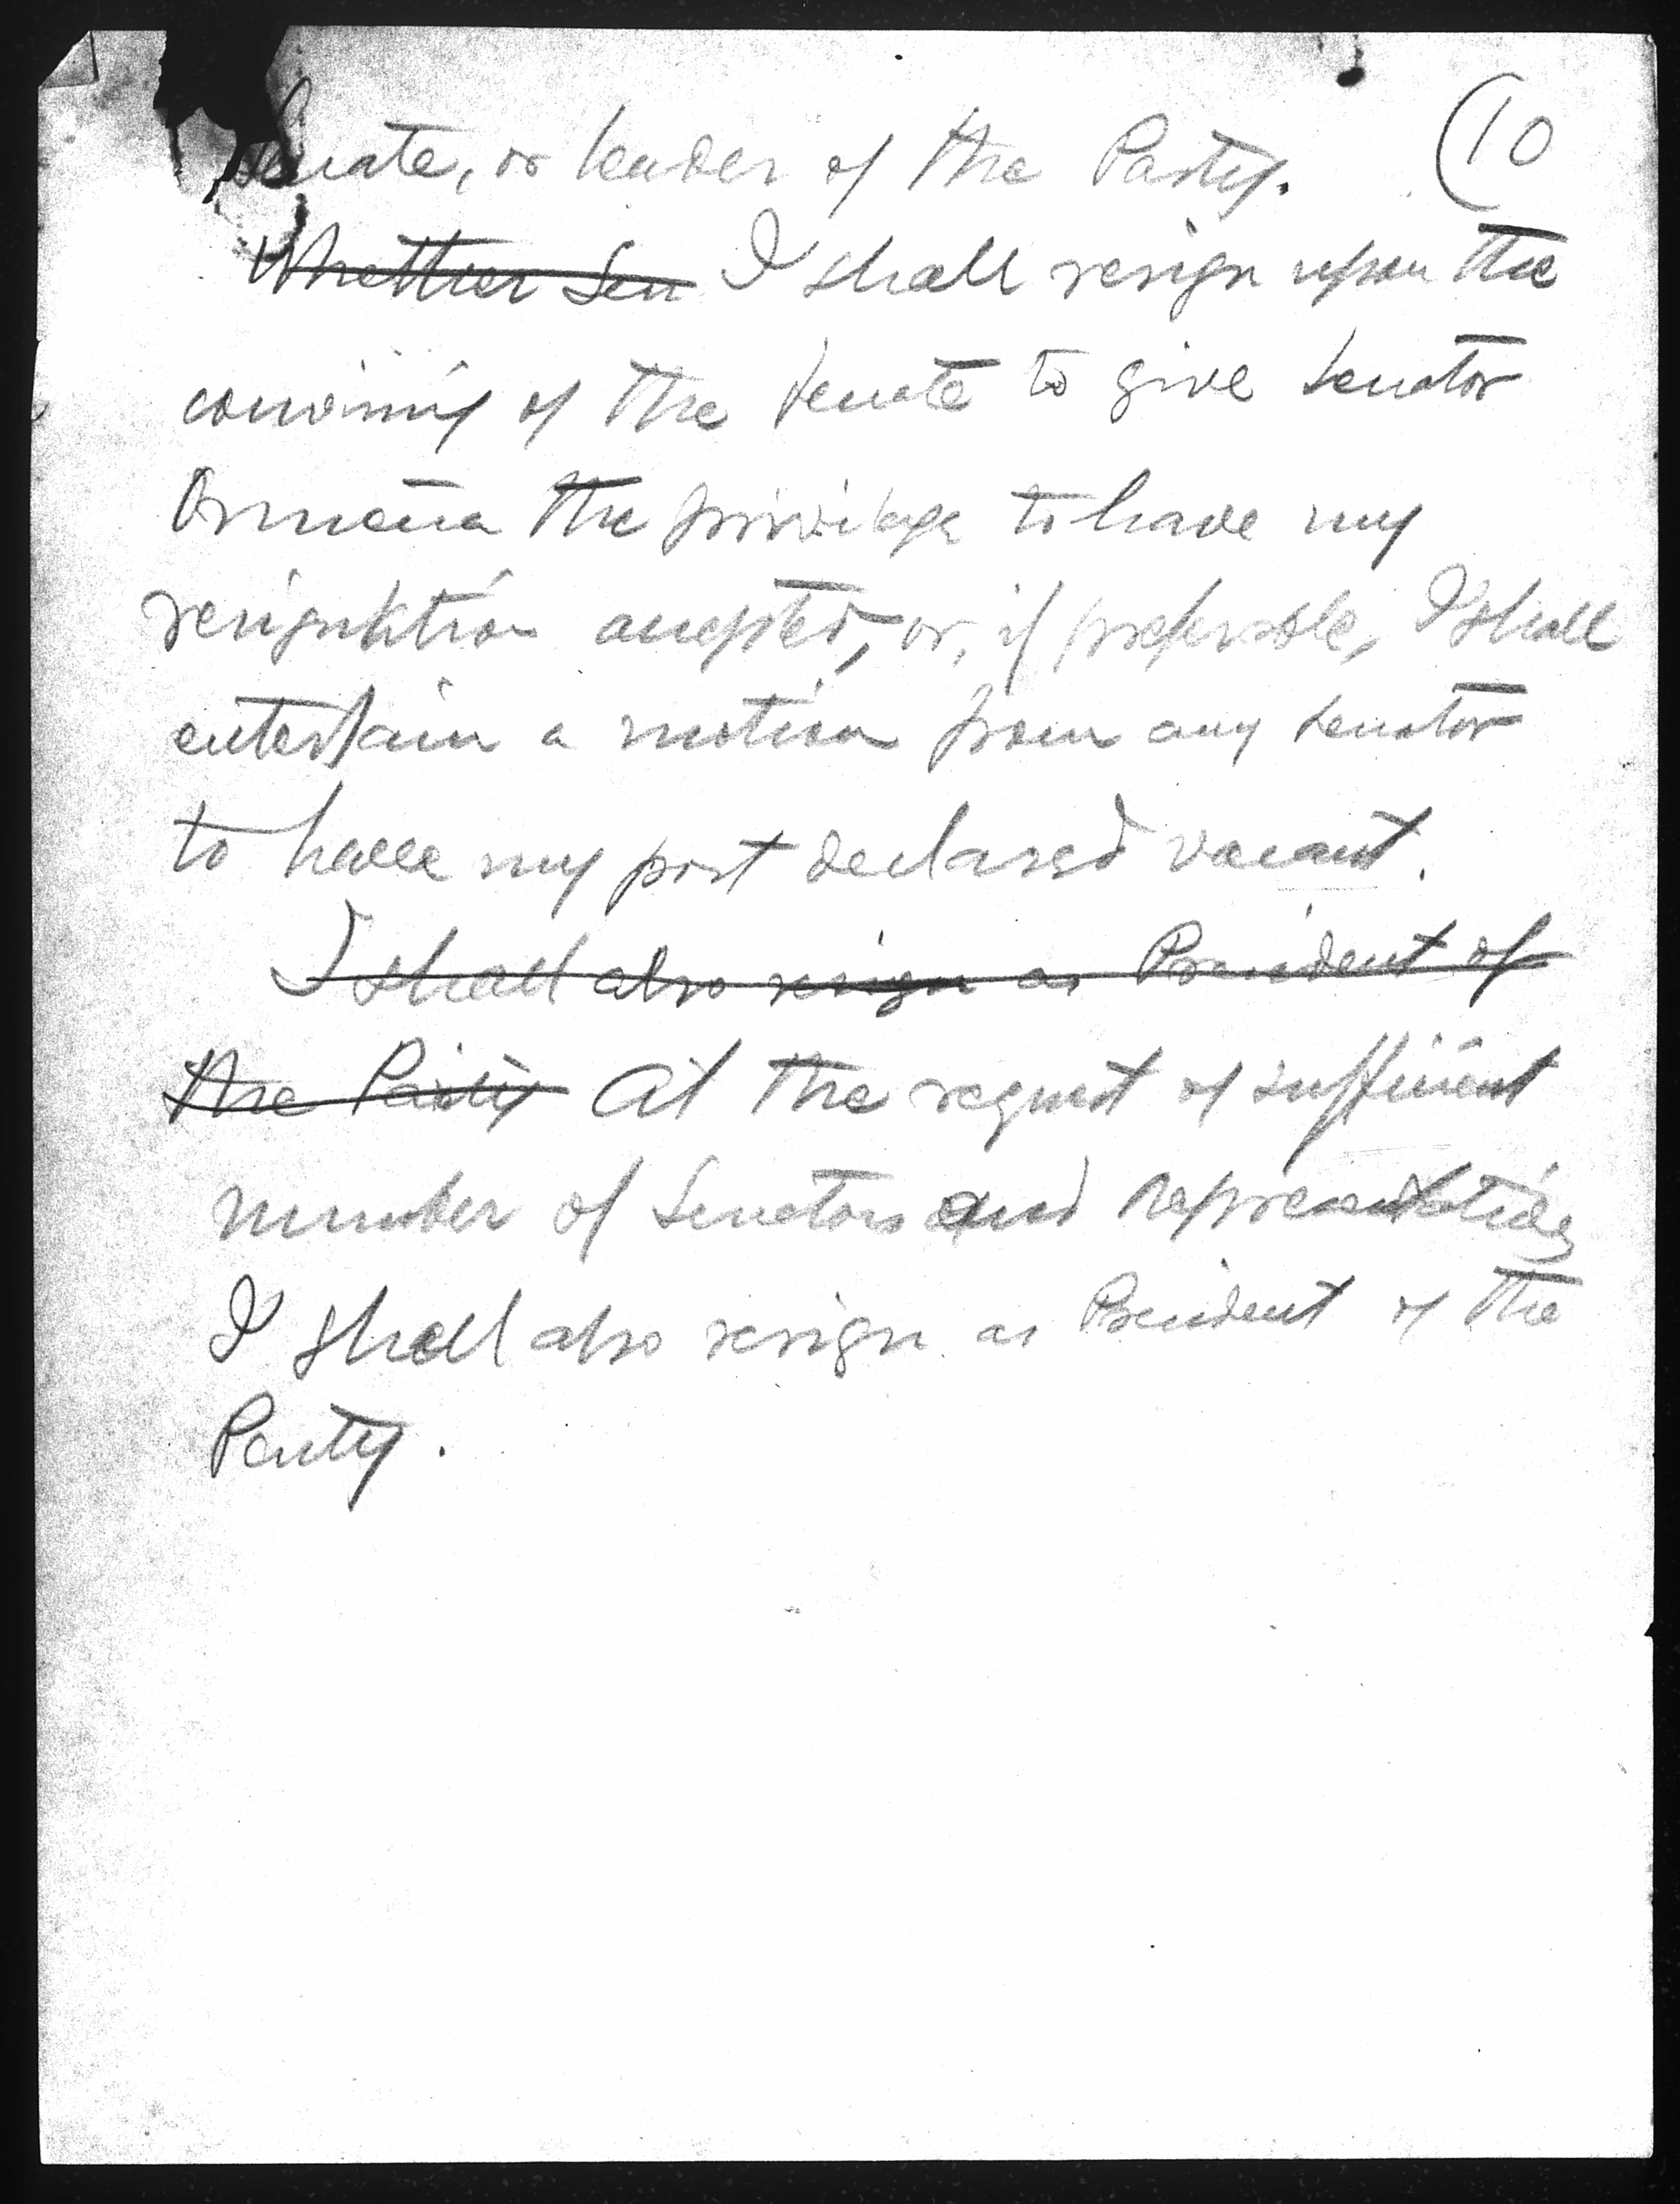 (10
Senate, or leader of the Party.
Whether Sen I shall resign upon the
convening of the Senate to give Senator
Osmeña the privilege to have my
resignation accepted, or, if preferable, I shall
entertain a motion from any Senator
to have my post declared vacant.
I shall also resign as President of
the Party At the request of sufficient
number of Senators and representatives
I shall also resign as President of the
Party.